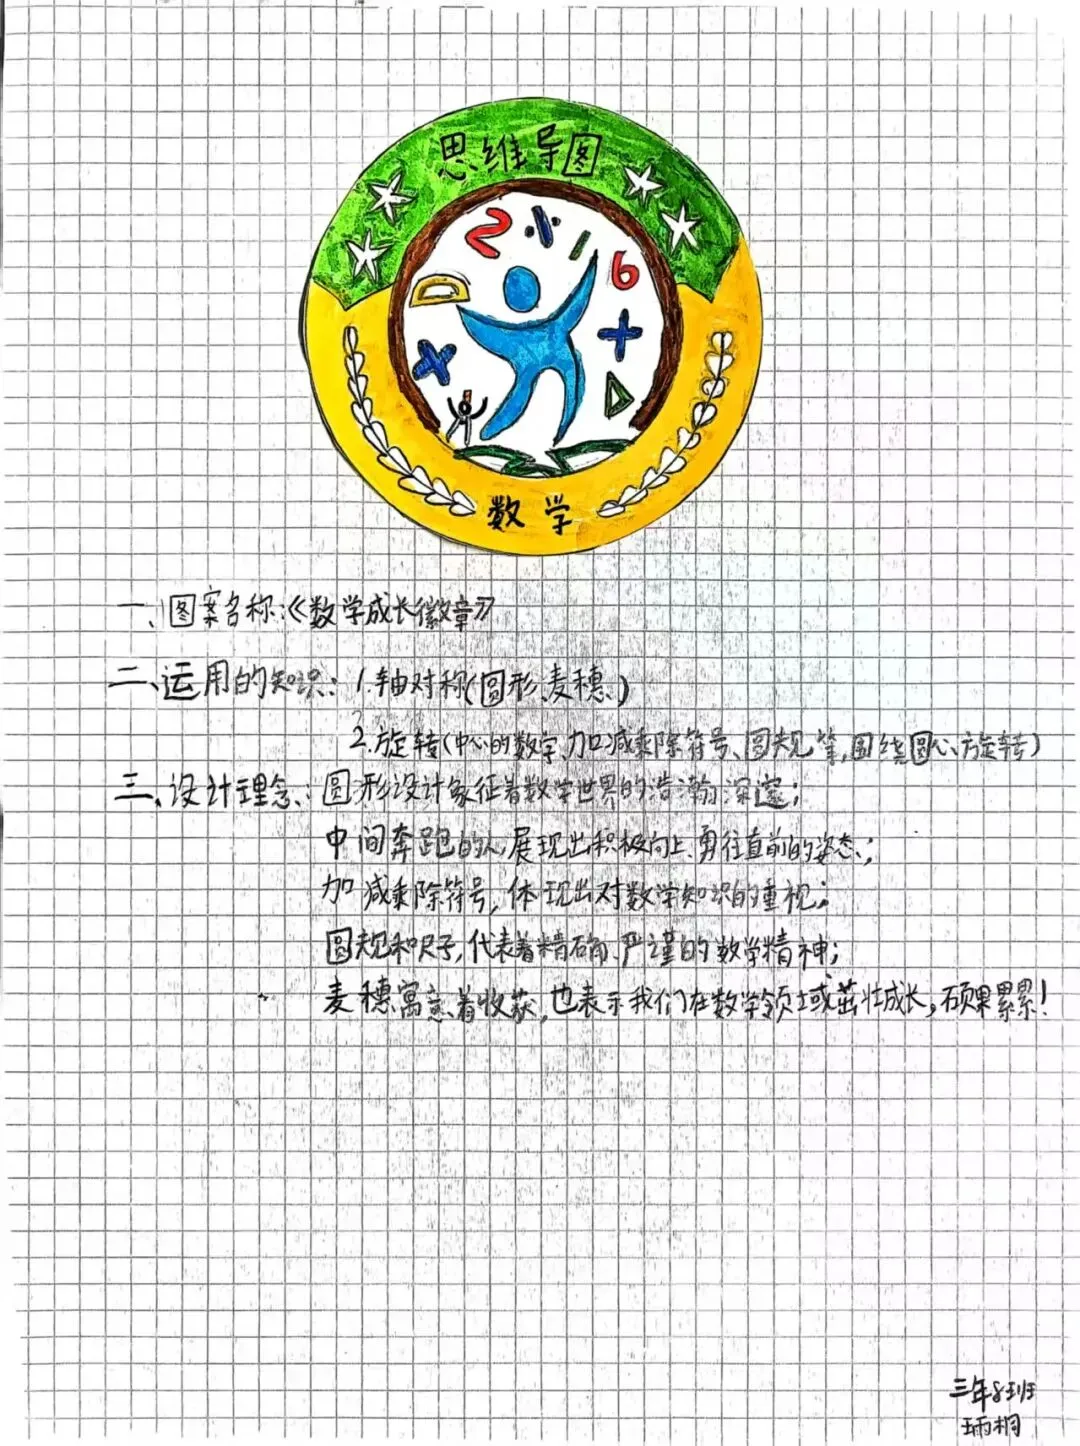 思维导图
2
6
数学
一、图案名称:《数学成长徽章》
二、运用的知识: 1.轴对称(圆形、麦穗、)
2.旋转(中心的数字、加减乘除符号、圆规等,围绕圆心旋转)
三、设计理念: 圆形设计象征着数学世界的浩瀚深邃;
中间奔跑的人,展现出积极向上、勇往直前的姿态;
加减乘除符号,体现出对数学知识的重视;
圆规和尺子,代表着精确、严谨的数学精神;
麦穗寓意着收获,也表示我们在数学领域茁壮成长,硕果累累!
三年8班
珃桐